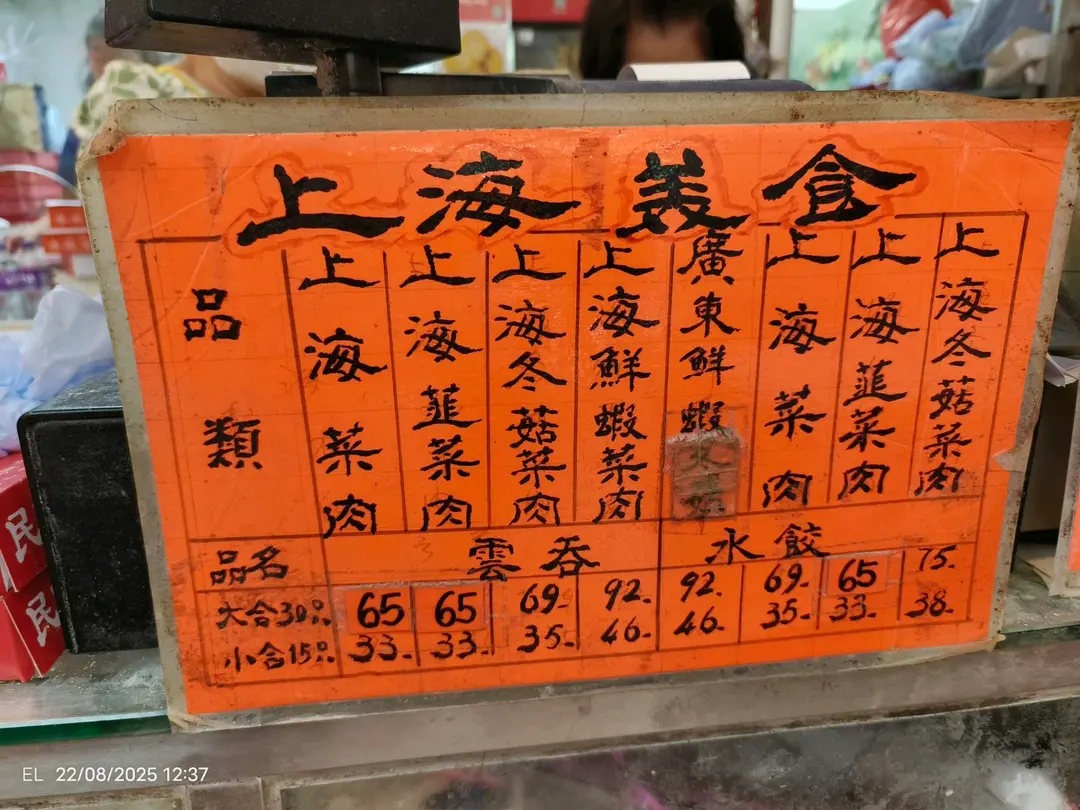 上海美食
品類
上海菜肉
上海韮菜肉
上海冬菇菜肉
上海鮮蝦菜肉
廣東鮮蝦
上海菜肉
上海韮菜肉
上海冬菇菜肉
品名 雲吞 水餃
大合30只 65 65 69- 92- 92- 69- 65 75-
小合15只 33- 33- 35- 46- 46- 35- 33- 38-
民
民
EL 22/08/2025 12:37